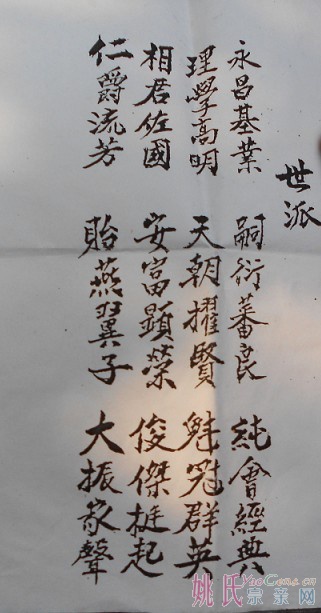 世派
永昌基業 嗣衍蕃良 純會經典
理學高明 天朝擢賢 魁冠群英
相君佐國 安富顯榮 俊傑挺起
仁爵流芳 貽燕翼子 大振家聲
姚氏宗亲网